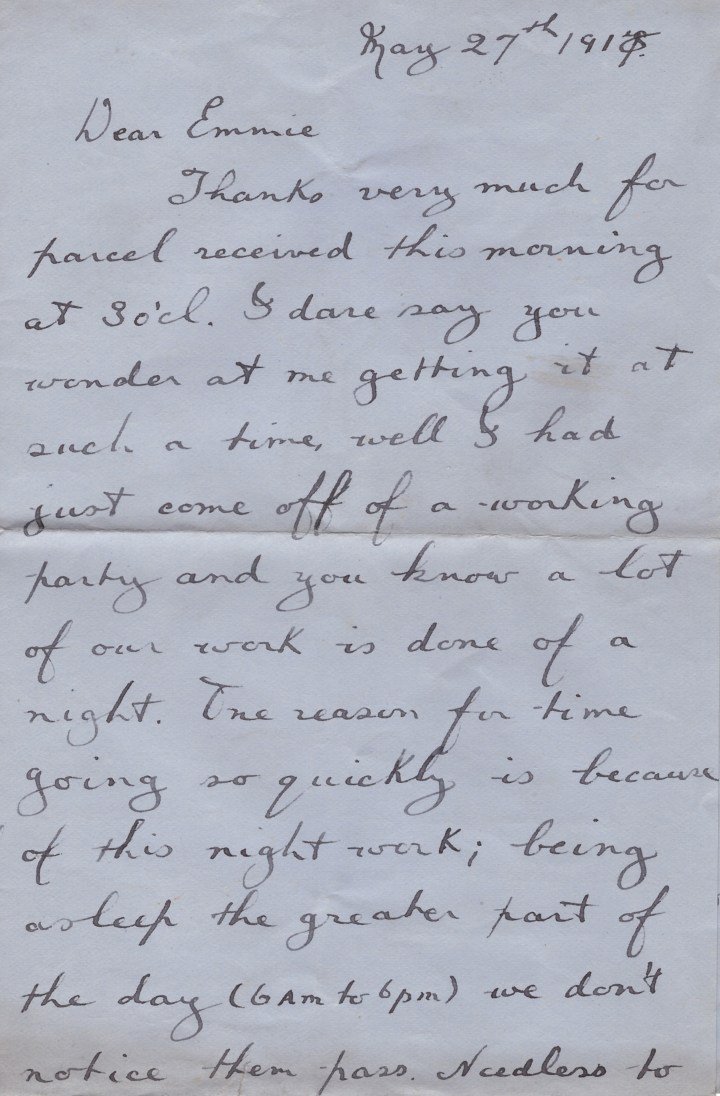 May 27th 191
Dear Emmie
Thanks very much for
parcel received this morning
at 3o'cl. I dare say you
wonder at me getting it at
such a time, well I had
just come off of a working
party and you know a lot
of our work is done of a
night. One reason for time
going so quickly is because
of this night work; being
asleep the greater part of
the day (6 Am to 6pm) we don't
notice them pass. Needless to